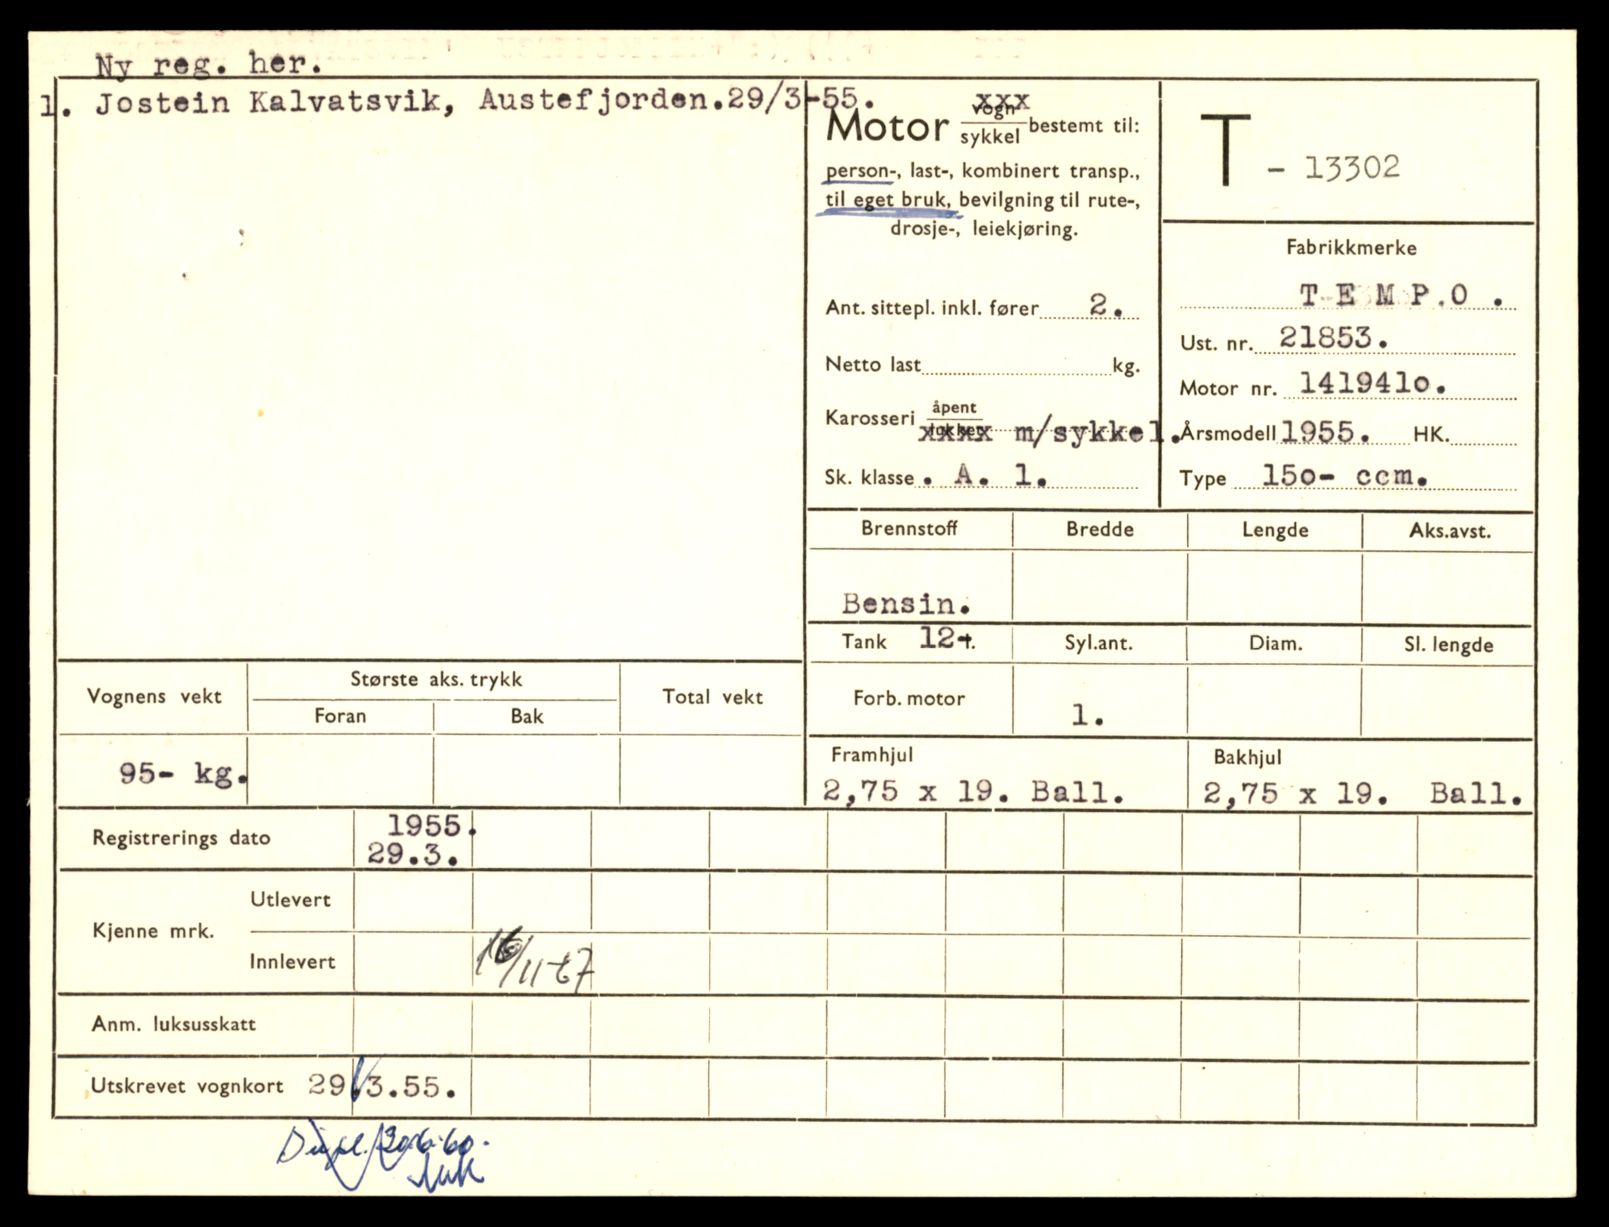 Ny reg. her.
1. Jostein Kalvatsvik, Austefjorden.29/3-55.
Motor vogn/sykkel bestemt til:
xxx
person-, last-, kombinert transp.,
til eget bruk, bevilgning til rute-,
drosje-, leiekjøring.
Ant. sittepl. inkl. fører 2.
Netto last kg.
Karosseri åpent/lukket xxxx m/sykkel.
Sk. klasse . A. 1.
T - 13302
Fabrikkmerke
T E M P.O .
Ust. nr. 21853.
Motor nr. 141941o.
Årsmodell 1955. HK.
Type 15o- ccm.
Brennstoff Bredde Lengde Aks.avst.
Bensin.
Tank 12 l. Syl.ant. Diam. Sl. lengde
Forb. motor 1.
Vognens vekt Største aks. trykk Total vekt
Foran Bak
95- kg.
Framhjul Bakhjul
2,75 x 19. Ball. 2,75 x 19. Ball.
Registrerings dato 1955.
29.3.
Kjenne mrk. Utlevert
Innlevert 16/11-67
Anm. luksusskatt
Utskrevet vognkort 29.3.55.
Dupl. 30.6.60.